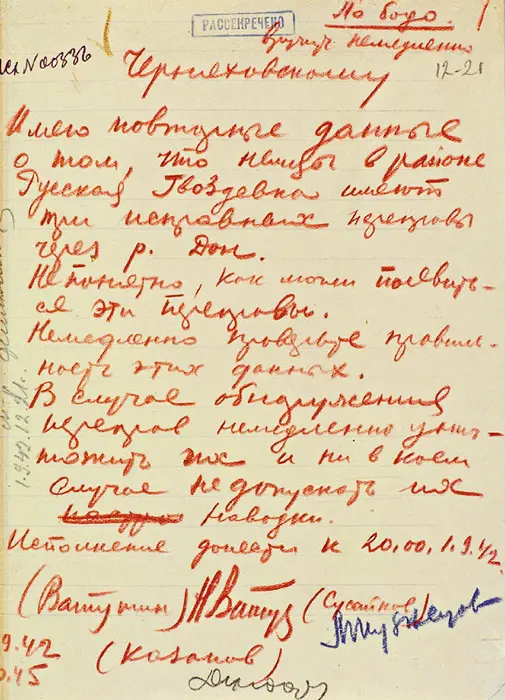 По бодо.
РАССЕКРЕЧЕНО
вручить немедленно
№00336
Черняховскому
12-21
Имею повторные данные
о том, что немцы в районе
Русская Гвоздевка имеют
три исправных переправы
через р. Дон.
Непонятно, как могли появить-
ся эти переправы.
Немедленно проверьте правиль-
ность этих данных.
В случае обнаружения
переправ немедленно унич-
тожить их и ни в коем
случае не допускать их
наводки.
Исполнение донести к 20.00. 1.9.42.
(Ватутин)
(Казаков)
9.42